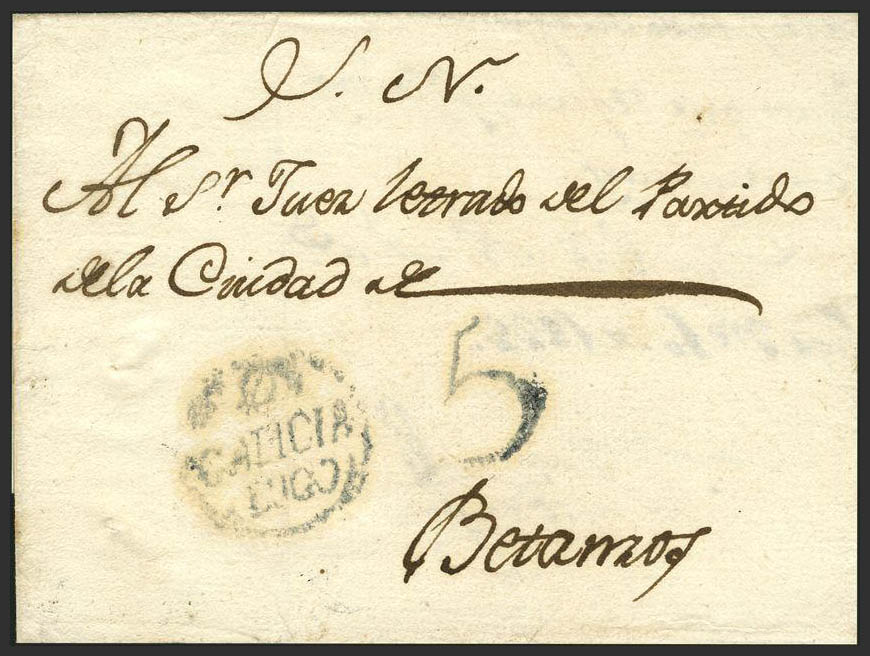 S. N.
Al Sr Juez letrado del Partido
dela Ciudad de
5
GALICIA
LUGO
Betanzos